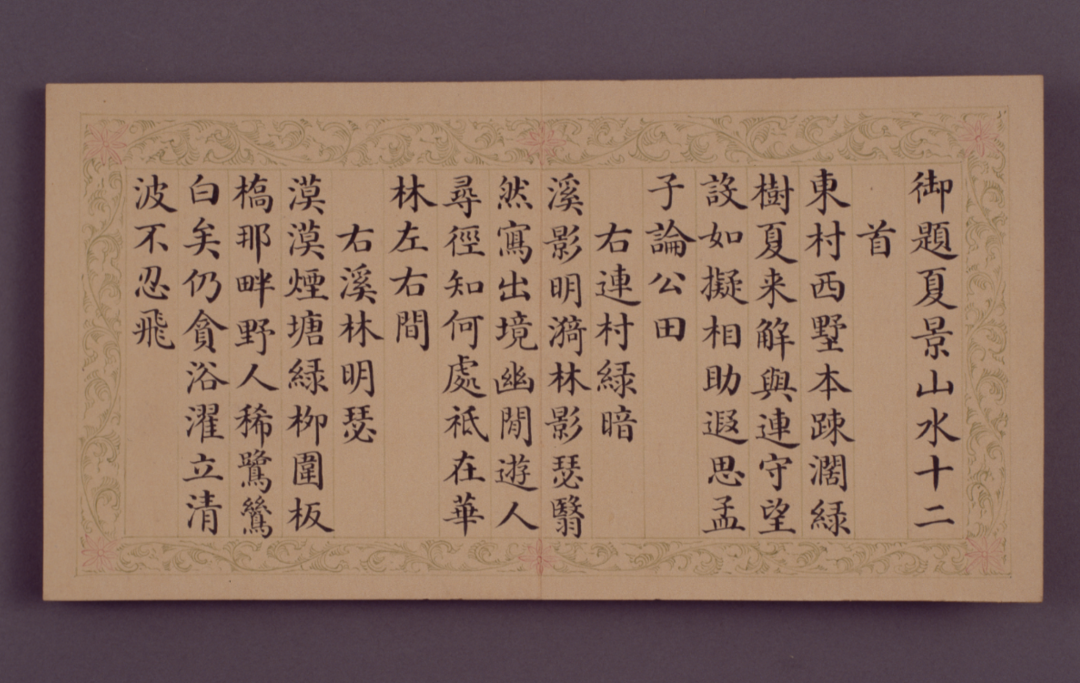 御題夏景山水十二
首
東村西墅本踈濶緑
樹夏来解與連守望
設如擬相助遐思孟
子論公田
右連村緑暗
溪影明漪林影瑟翳
然寫出境幽閒遊人
尋徑知何處祗在華
林左右間
右溪林明瑟
漠漠煙塘緑柳圍板
槁那畔野人稀鷺鷥
白矣仍貪浴濯立清
波不忍飛